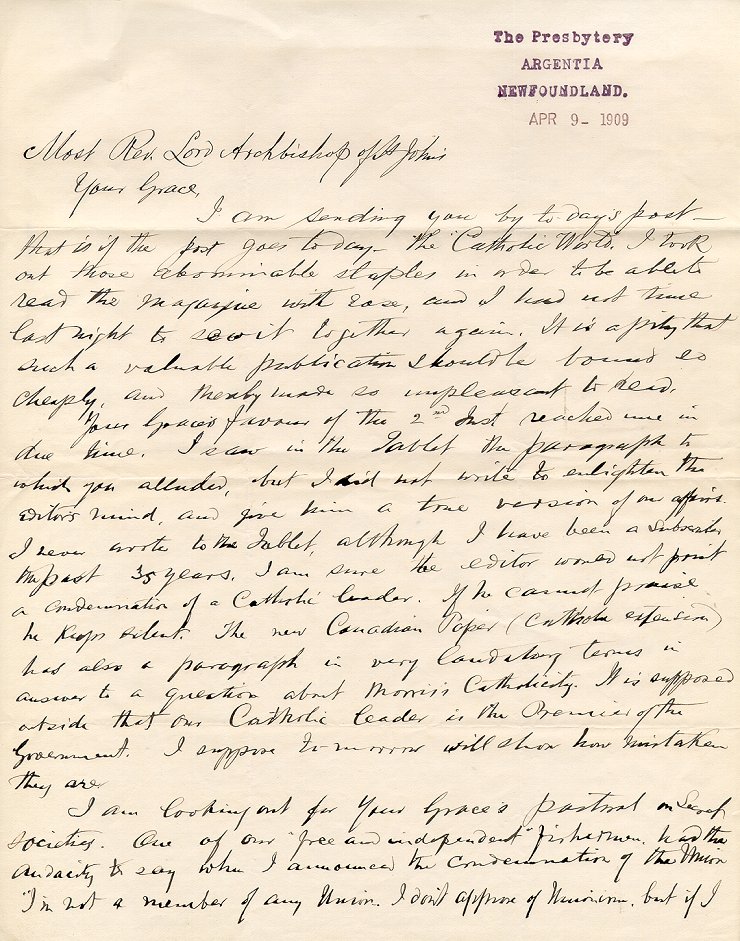 The Presbytery
ARGENTIA
NEWFOUNDLAND.
APR 9- 1909
Most Rev. Lord Archbishop of St John's
Your Grace,
I am sending you by to-day's post -
that is if the post goes to day - the "Catholic World". I took
out those abominable staples in order to be able to
read the magazine with ease, and I had not time
last night to sew it together again. It is a pity that
such a valuable publication should be bound so
cheaply, and thereby made so unpleasant to read.
Your Grace's favour of the 2nd Inst reached me in
due time. I saw in the Tablet the paragraph to
which you alluded, but I did not write to enlighten the
editor's mind, and give him a true version of our affairs.
I never wrote to the Tablet, although I have been a subscriber
the past 35 years. I am sure the editor would not print
a condemnation of a Catholic leader. If he cannot praise
he keeps silent. The new Canadian Paper (Catholic extension)
has also a paragraph in very laudatory terms in
answer to a question about Morris's Catholicity. It is supposed
outside that our Catholic leader is the Premier of the
Government. I suppose to-morrow will show how mistaken
they are
I am looking out for Your Grace's pastoral on Secret
societies. One of our "free and independent" fishermen had the
audacity to say when I announced the condemnation of the Union
"I'm not a member of any Union. I don't approve of Unionism, but if I